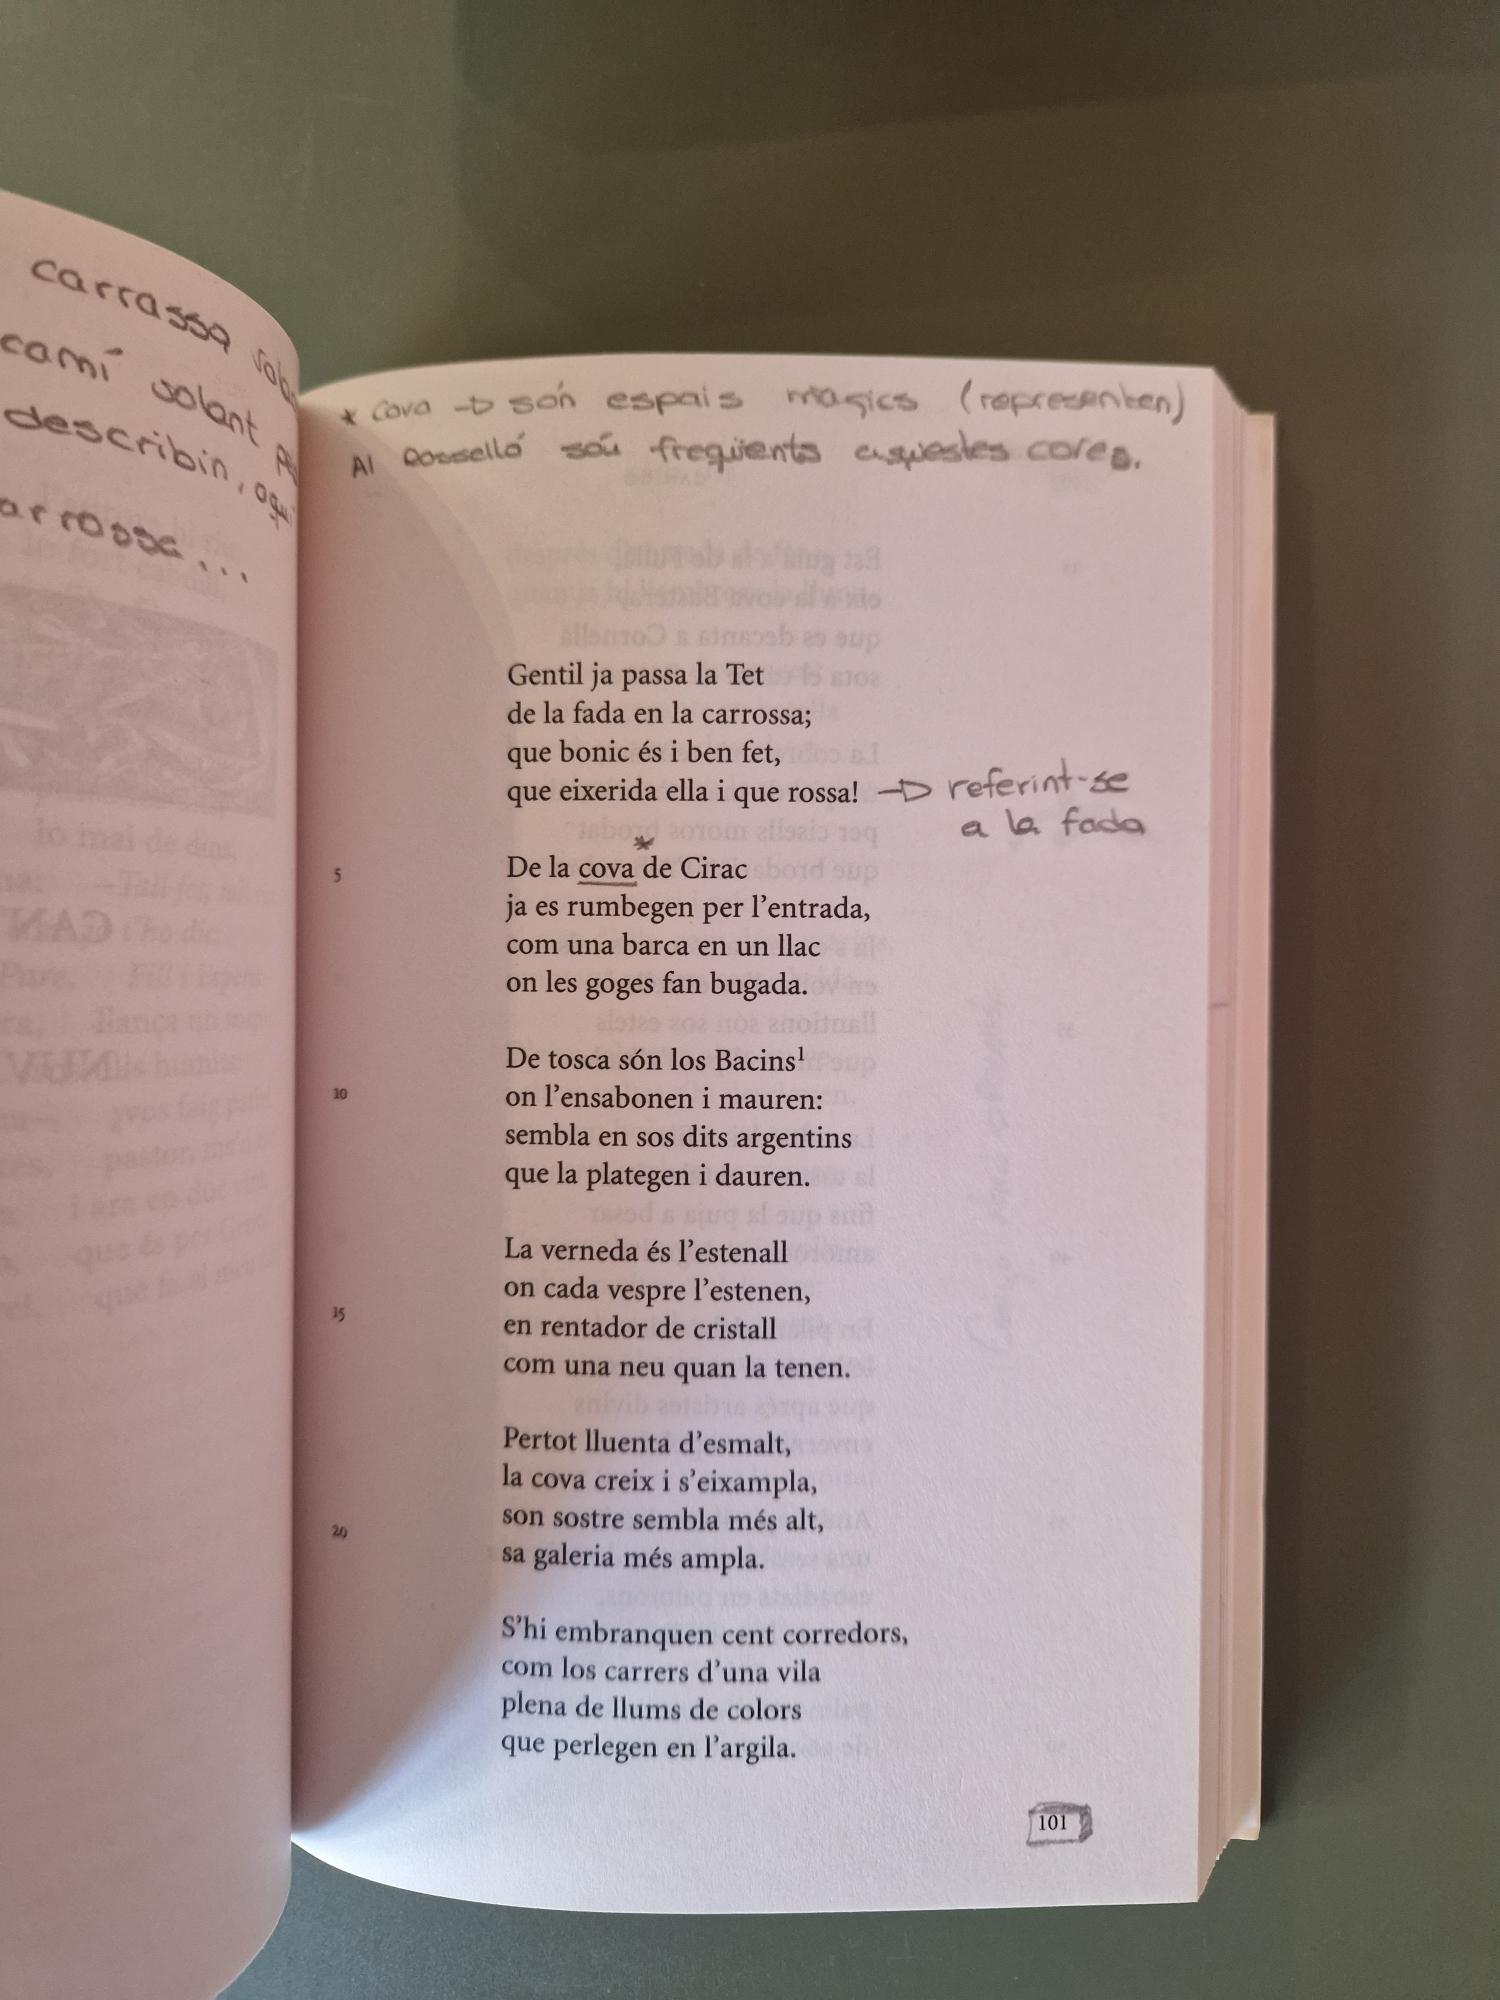 carrassa
camí volant
describin, aquí
arrossa...
* Cova → són espais magics (representen)
Al Rosselló són freqüents aquestes coves.
Gentil ja passa la Tet
de la fada en la carrossa;
que bonic és i ben fet,
que eixerida ella i que rossa! → referint-se
a la fada
*
5 De la cova de Cirac
ja es rumbegen per l'entrada,
com una barca en un llac
on les goges fan bugada.
De tosca són los Bacins¹
10 on l'ensabonen i mauren:
sembla en sos dits argentins
que la plategen i dauren.
La verneda és l'estenall
on cada vespre l'estenen,
15 en rentador de cristall
com una neu quan la tenen.
Pertot lluenta d'esmalt,
la cova creix i s'eixampla,
son sostre sembla més alt,
20 sa galeria més ampla.
S'hi embranquen cent corredors,
com los carrers d'una vila
plena de llums de colors
que perlegen en l'argila.
101